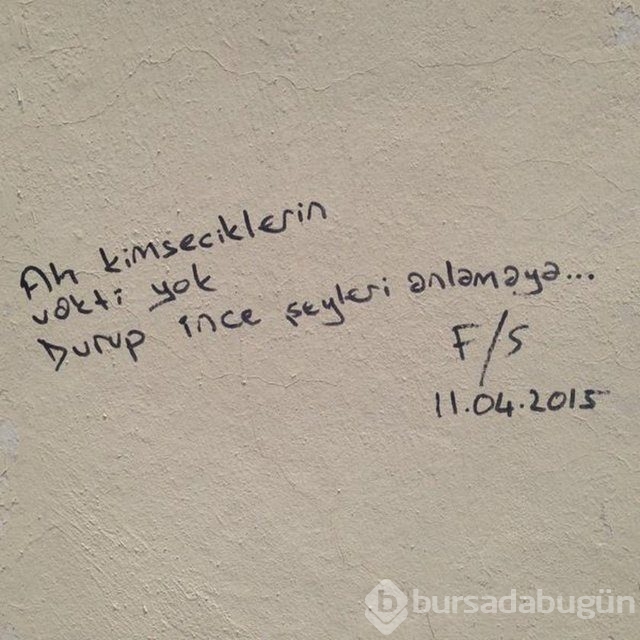 Ah kimseciklerin
vakti yok
Durup ince şeyleri anlamaya...
F/S
11.04.2015
bursadabugün